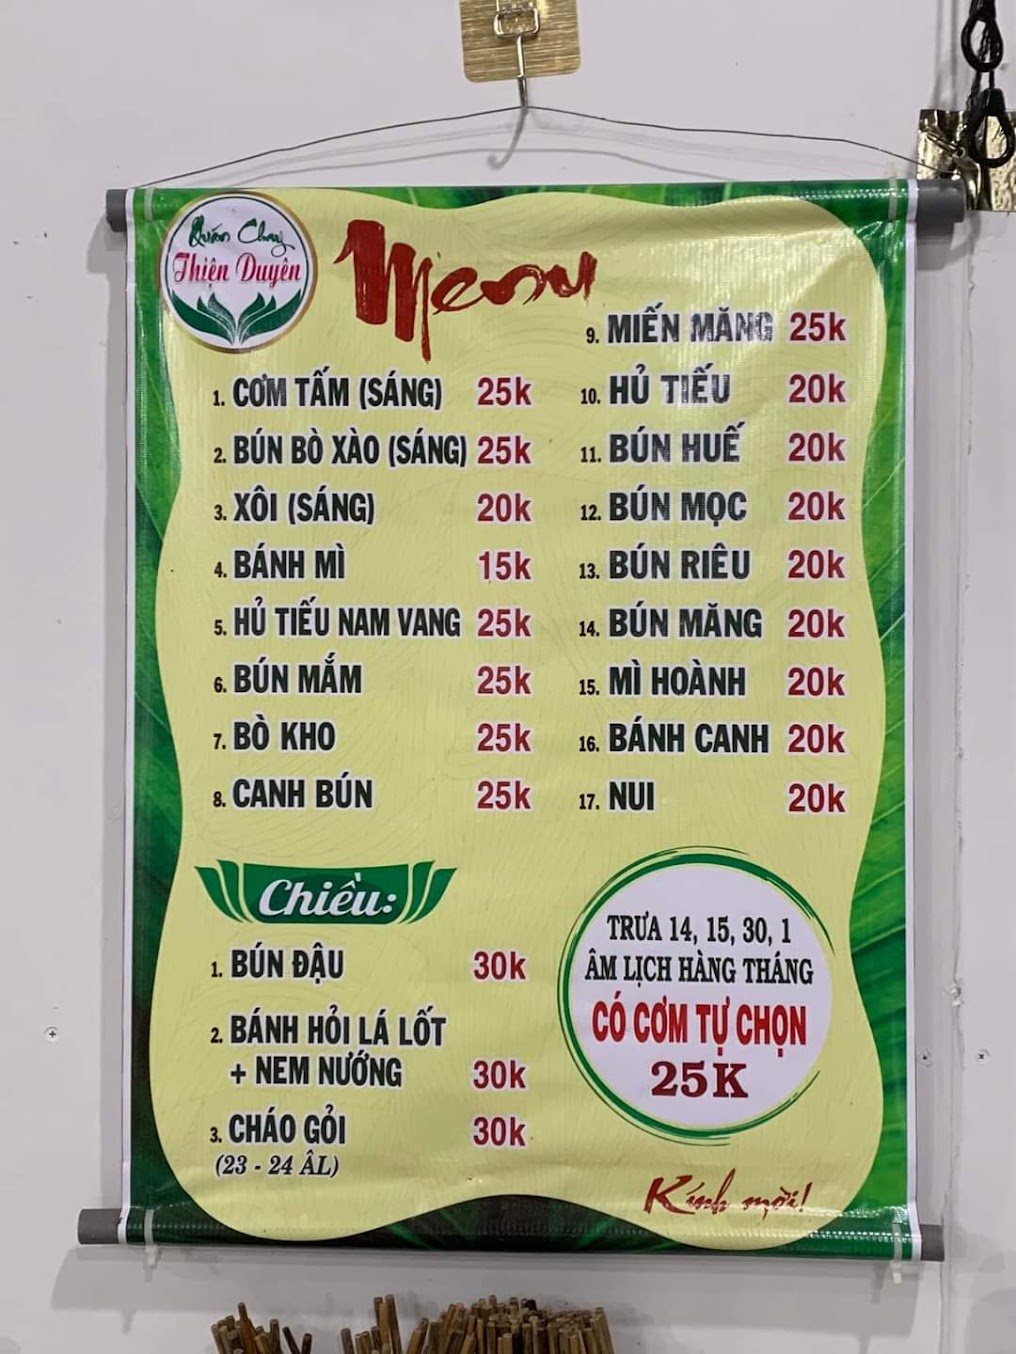 Quán Chay
Thiện Duyên
Menu
1. CƠM TẤM (SÁNG) 25k
2. BÚN BÒ XÀO (SÁNG) 25k
3. XÔI (SÁNG) 20k
4. BÁNH MÌ 15k
5. HỦ TIẾU NAM VANG 25k
6. BÚN MẮM 25k
7. BÒ KHO 25k
8. CANH BÚN 25k
9. MIẾN MĂNG 25k
10. HỦ TIẾU 20k
11. BÚN HUẾ 20k
12. BÚN MỌC 20k
13. BÚN RIÊU 20k
14. BÚN MĂNG 20k
15. MÌ HOÀNH 20k
16. BÁNH CANH 20k
17. NUI 20k
Chiều:
1. BÚN ĐẬU 30k
2. BÁNH HỎI LÁ LỐT
+ NEM NƯỚNG 30k
3. CHÁO GỎI 30k
(23 - 24 ÂL)
TRƯA 14, 15, 30, 1
ÂM LỊCH HÀNG THÁNG
CÓ CƠM TỰ CHỌN
25K
Kính mời!